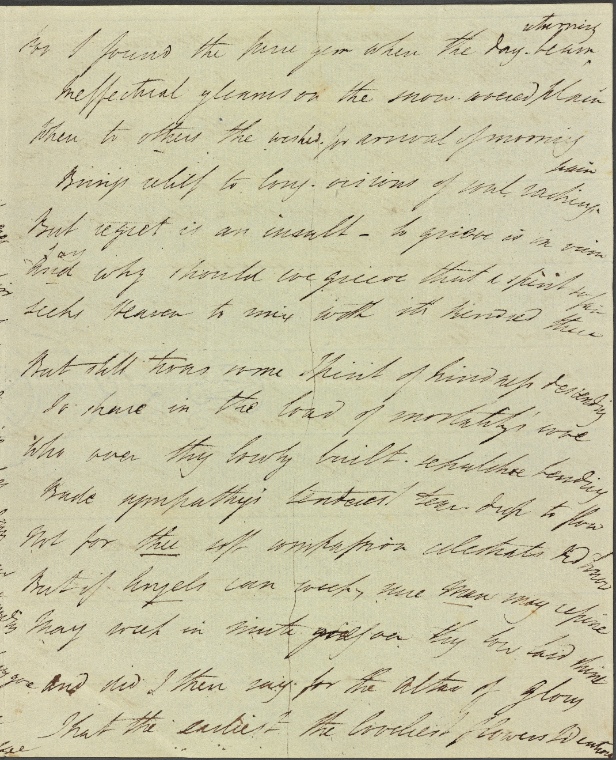 For I found the pure gem when the day-beam returning
Ineffectual gleams on the snow-covered plain
When to others the wished-for arrival of morning
Brings relief to long visions of soul racking pain
But regret is an insult – to grieve is in vain
And why should we grieve that a spirit so fair
Seeks Heaven to mix with its kindred there

But still 'twas some Spirit of kindness descending
To share in the load of mortality's woe
Who over thy lowly built sepulchre bending
Bade sympathy's tenderest tear drop to flow
Not for thee soft compassion celestials did know
But if Angels can weep, sure Man may repine
May weep in mute grief over thy low laid shrine

And did I then say for the altar of glory
That the earliest the loveliest flowers I'd entwine